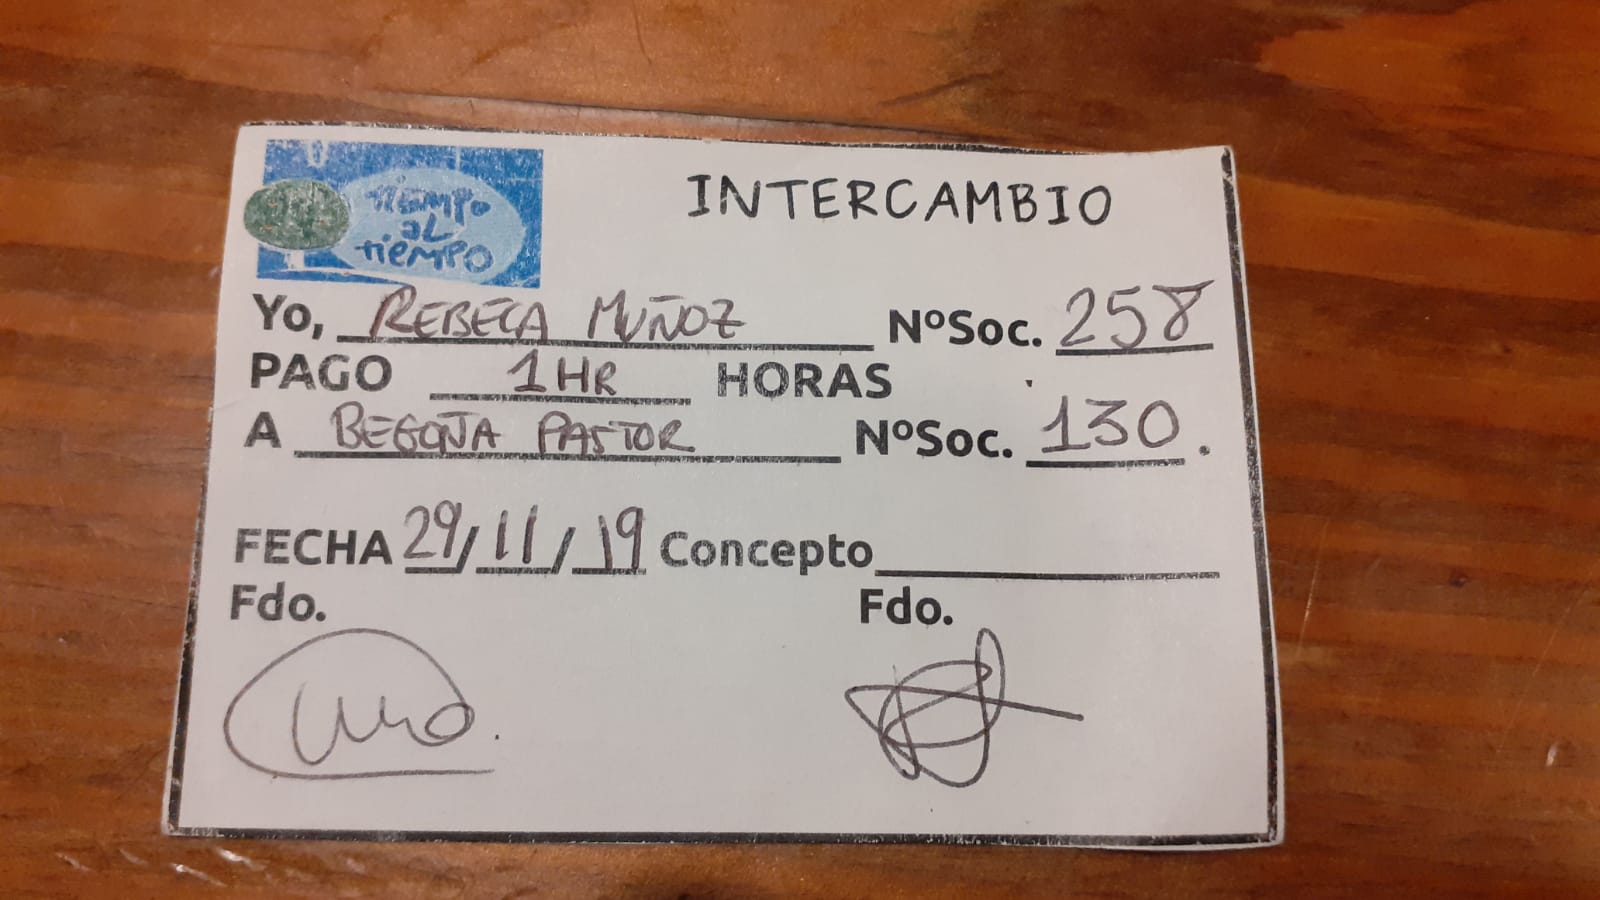 tiempo
al
tiempo
INTERCAMBIO
Yo, REBECA MUÑOZ NºSoc. 258
PAGO 1HR HORAS
A BEGOÑA PASTOR NºSoc. 130.
FECHA 29/11/19 Concepto
Fdo. Fdo.